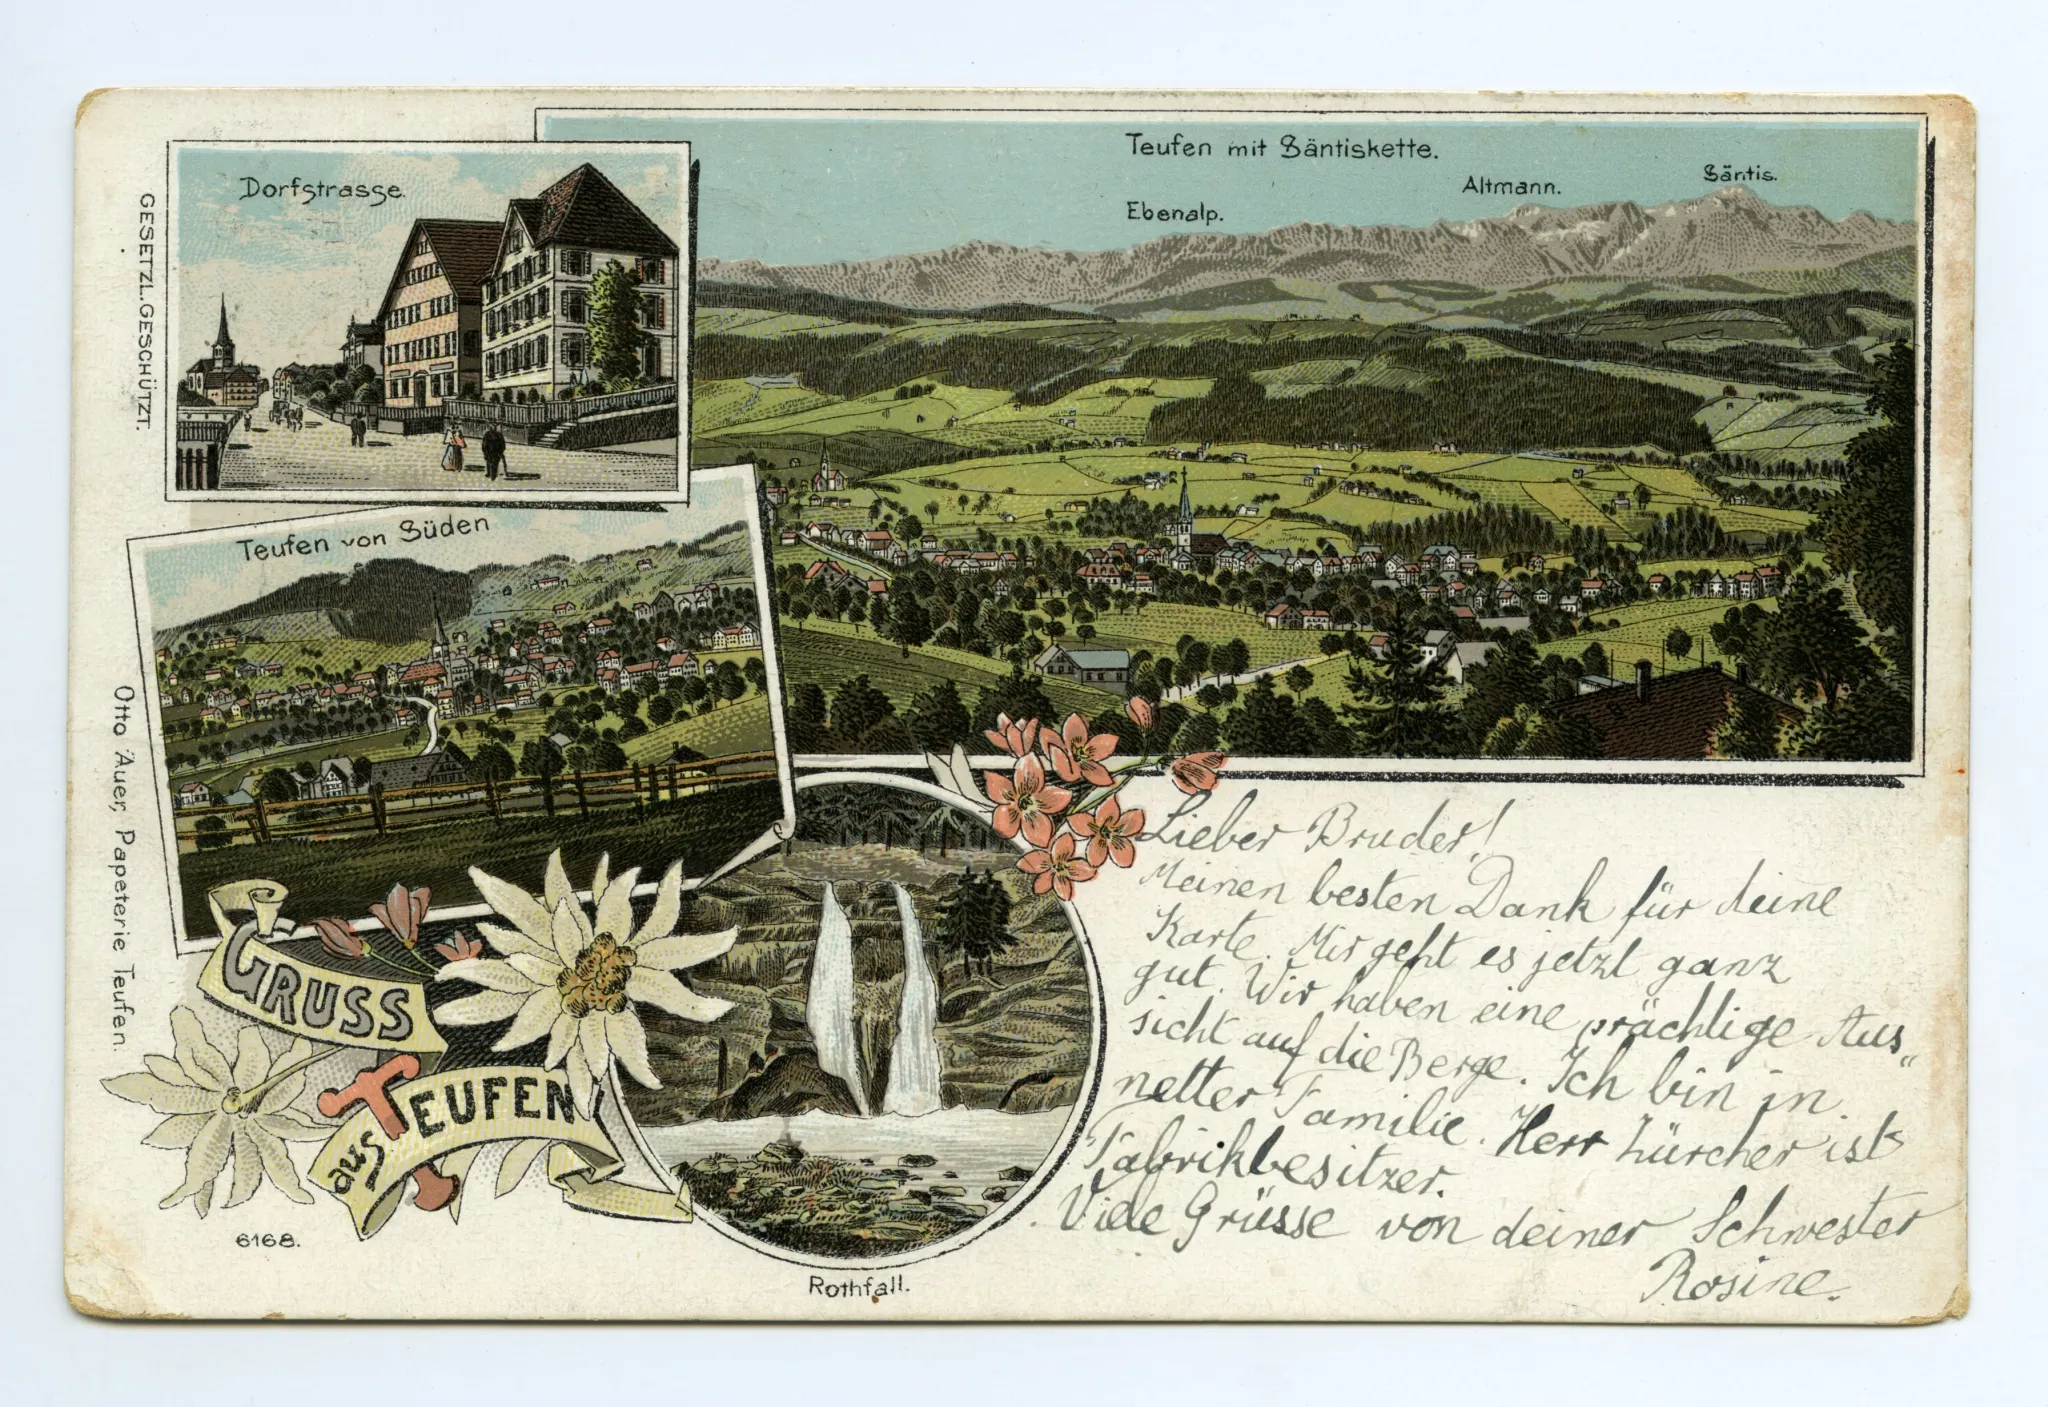 GESETZL. GESCHÜTZT.
Dorfstrasse.
Teufen mit Säntiskette.
Ebenalp.
Altmann.
Säntis.
Teufen von Süden
Otto Auer, Papeterie Teufen.
GRUSS
aus TEUFEN
6168.
Rothfall.
Lieber Bruder!
Meinen besten Dank für deine
Karte. Mir geht es jetzt ganz
gut. Wir haben eine prächtige Aus„
sicht auf die Berge. Ich bin in
netter Familie. Herr Zürcher ist
Fabrikbesitzer.
Viele Grüsse von deiner Schwester
Rosine.